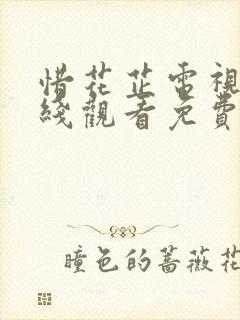 惜花芷電視
綫觀看免費
瞳色的蔷薇花